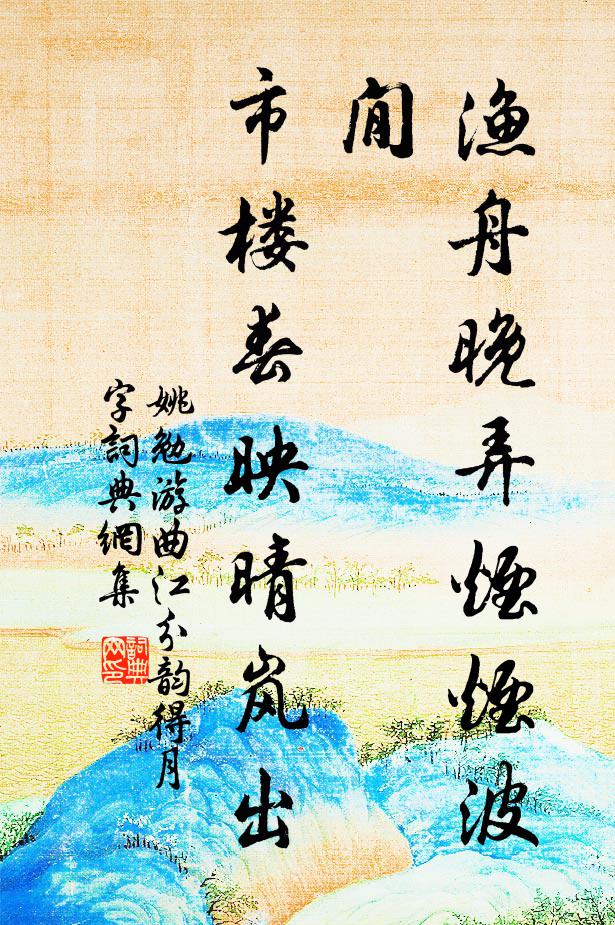 渔舟晚弄煙煙波
閒
市楼春映晴岚出
姚勉游曲江分韻得月
字詞典網集
詞典
网印